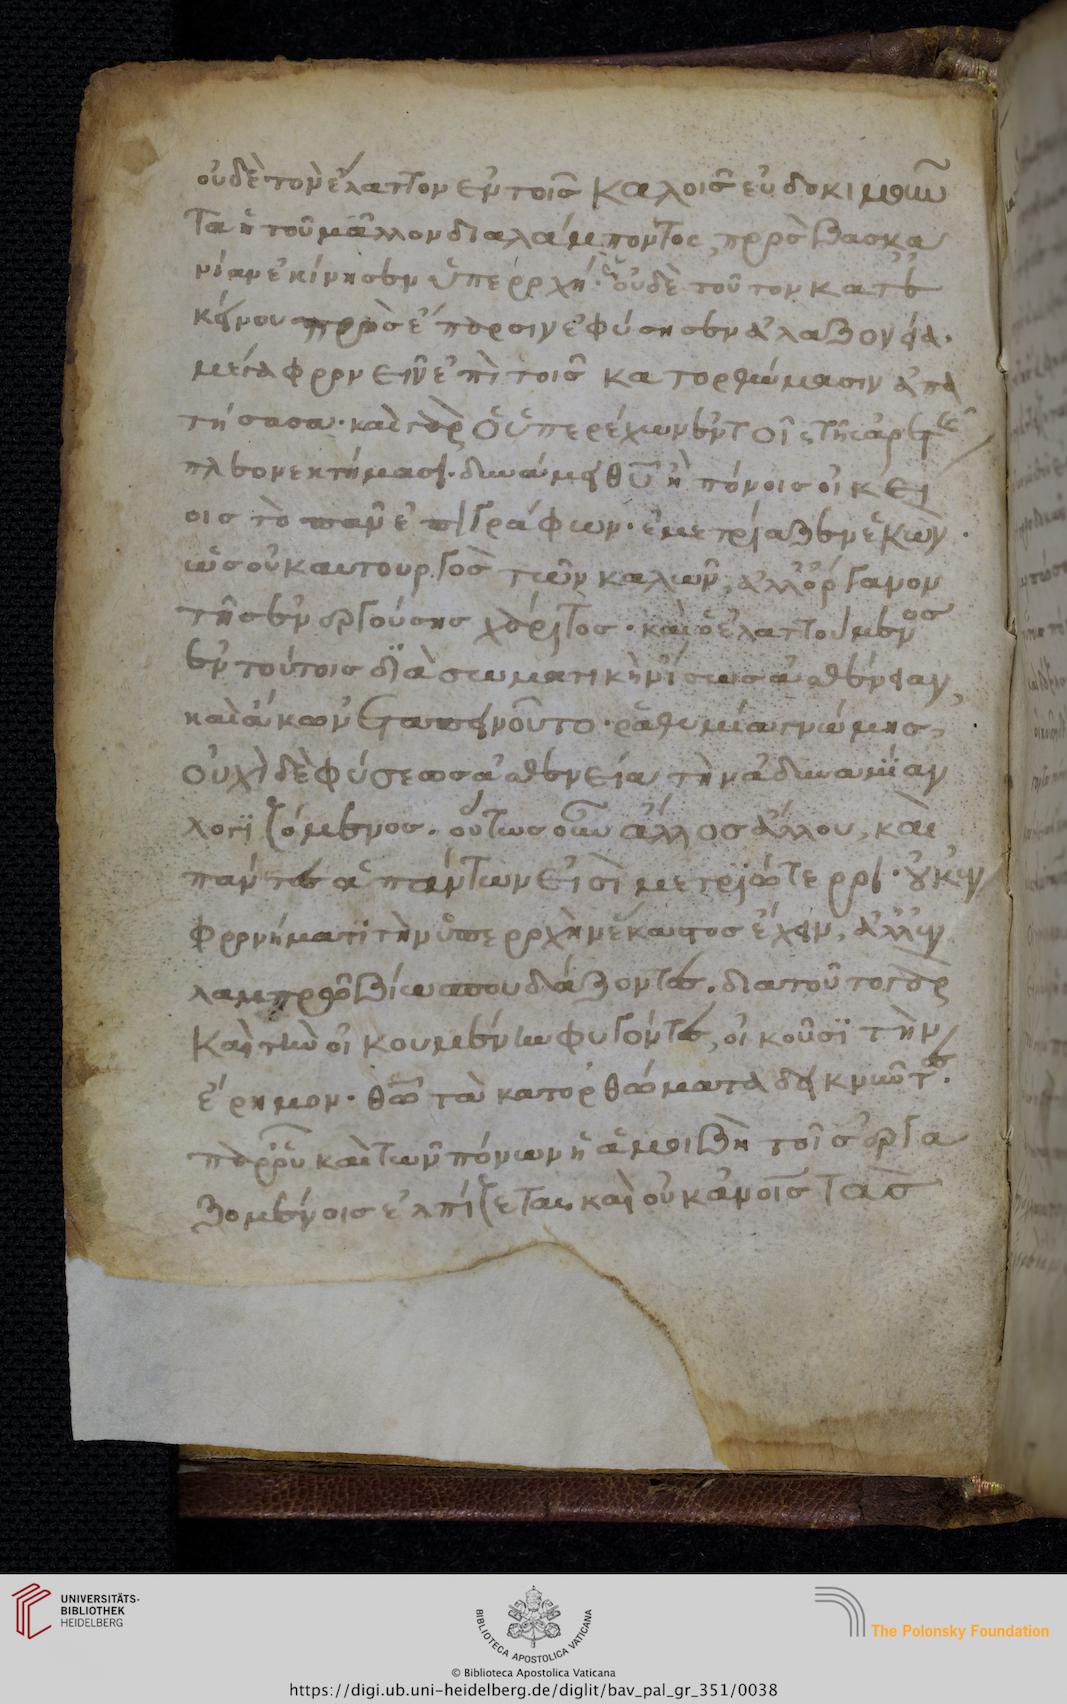 οὐδὲ τὸν ἔλαττον ἐν τοῖς καλοῖς εὐδοκιμοῦν
τα ἡ τοῦ μᾶλλον διαλάμποντος, πρὸς βασκα
νίαν ἐκίνησεν ὑπεροχή· οὐδὲ τοῦτον κατ' ἐ
κείνου πρὸς ἔπαρσιν ἐφύσησεν ἀλαζονεία·
μέγα φρονεῖν ἐπὶ τοῖς κατορθώμασιν ἀπα
τήσασα· καὶ γὰρ ὁ ὑπερέχων ἐν τοῖς τῆς ἀρετῆς
πλεονεκτήμασι· δυνάμει θυ ἢ πόνοις οἰκεί
οις τὸ πᾶν ἐπιγράφων· ἐμετρίαζεν ἑκών·
ὡς οὐκ αυτουργὸς τῶν καλῶν, ἀλλ' ὄργανον
τῆς ἐνεργούσης χάριτος· καὶ ὁ ἐλαττούμενος
ἐν τούτοις διὰ σωματικὴν ἴσως ἀσθένειαν,
καὶ ἄκων ἐταπεινοῦτο· ῥαθυμία γνώμης,
οὐχὶ δὲ φύσεως ἀσθενεία τὴν ἀδυναμίαν
λογιζόμενος. οὕτως οὖν ἄλλος ἄλλου, καὶ
πάντες ἁπάντων εἰσὶ μετριώτεροι· οὐκ ἐν
φρονήματι τὴν ὑπεροχὴν ἕκαστος ἔχειν, ἀλλ' ἐν
λαμπρῶ βίω σπουδάζοντες. διατοῦτο γὰρ
καὶ τὴν οἰκουμένην φυγόντες, οἰκοῦσι τὴν
ἔρημον· θῶ τὰ κατορθώματα δεικνῦντες·
παρ' οὗ καὶ τῶν πόνων ἡ ἀμοιβὴ τοῖς ἐργα
ζομένοις ἐλπίζεται, καὶ οὐκ ἀνοις τὰς
UNIVERSITÄTS-
BIBLIOTHEK
HEIDELBERG
BIBLIOTECA APOSTOLICA VATICANA
The Polonsky Foundation
© Biblioteca Apostolica Vaticana
https://digi.ub.uni-heidelberg.de/diglit/bav_pal_gr_351/0038